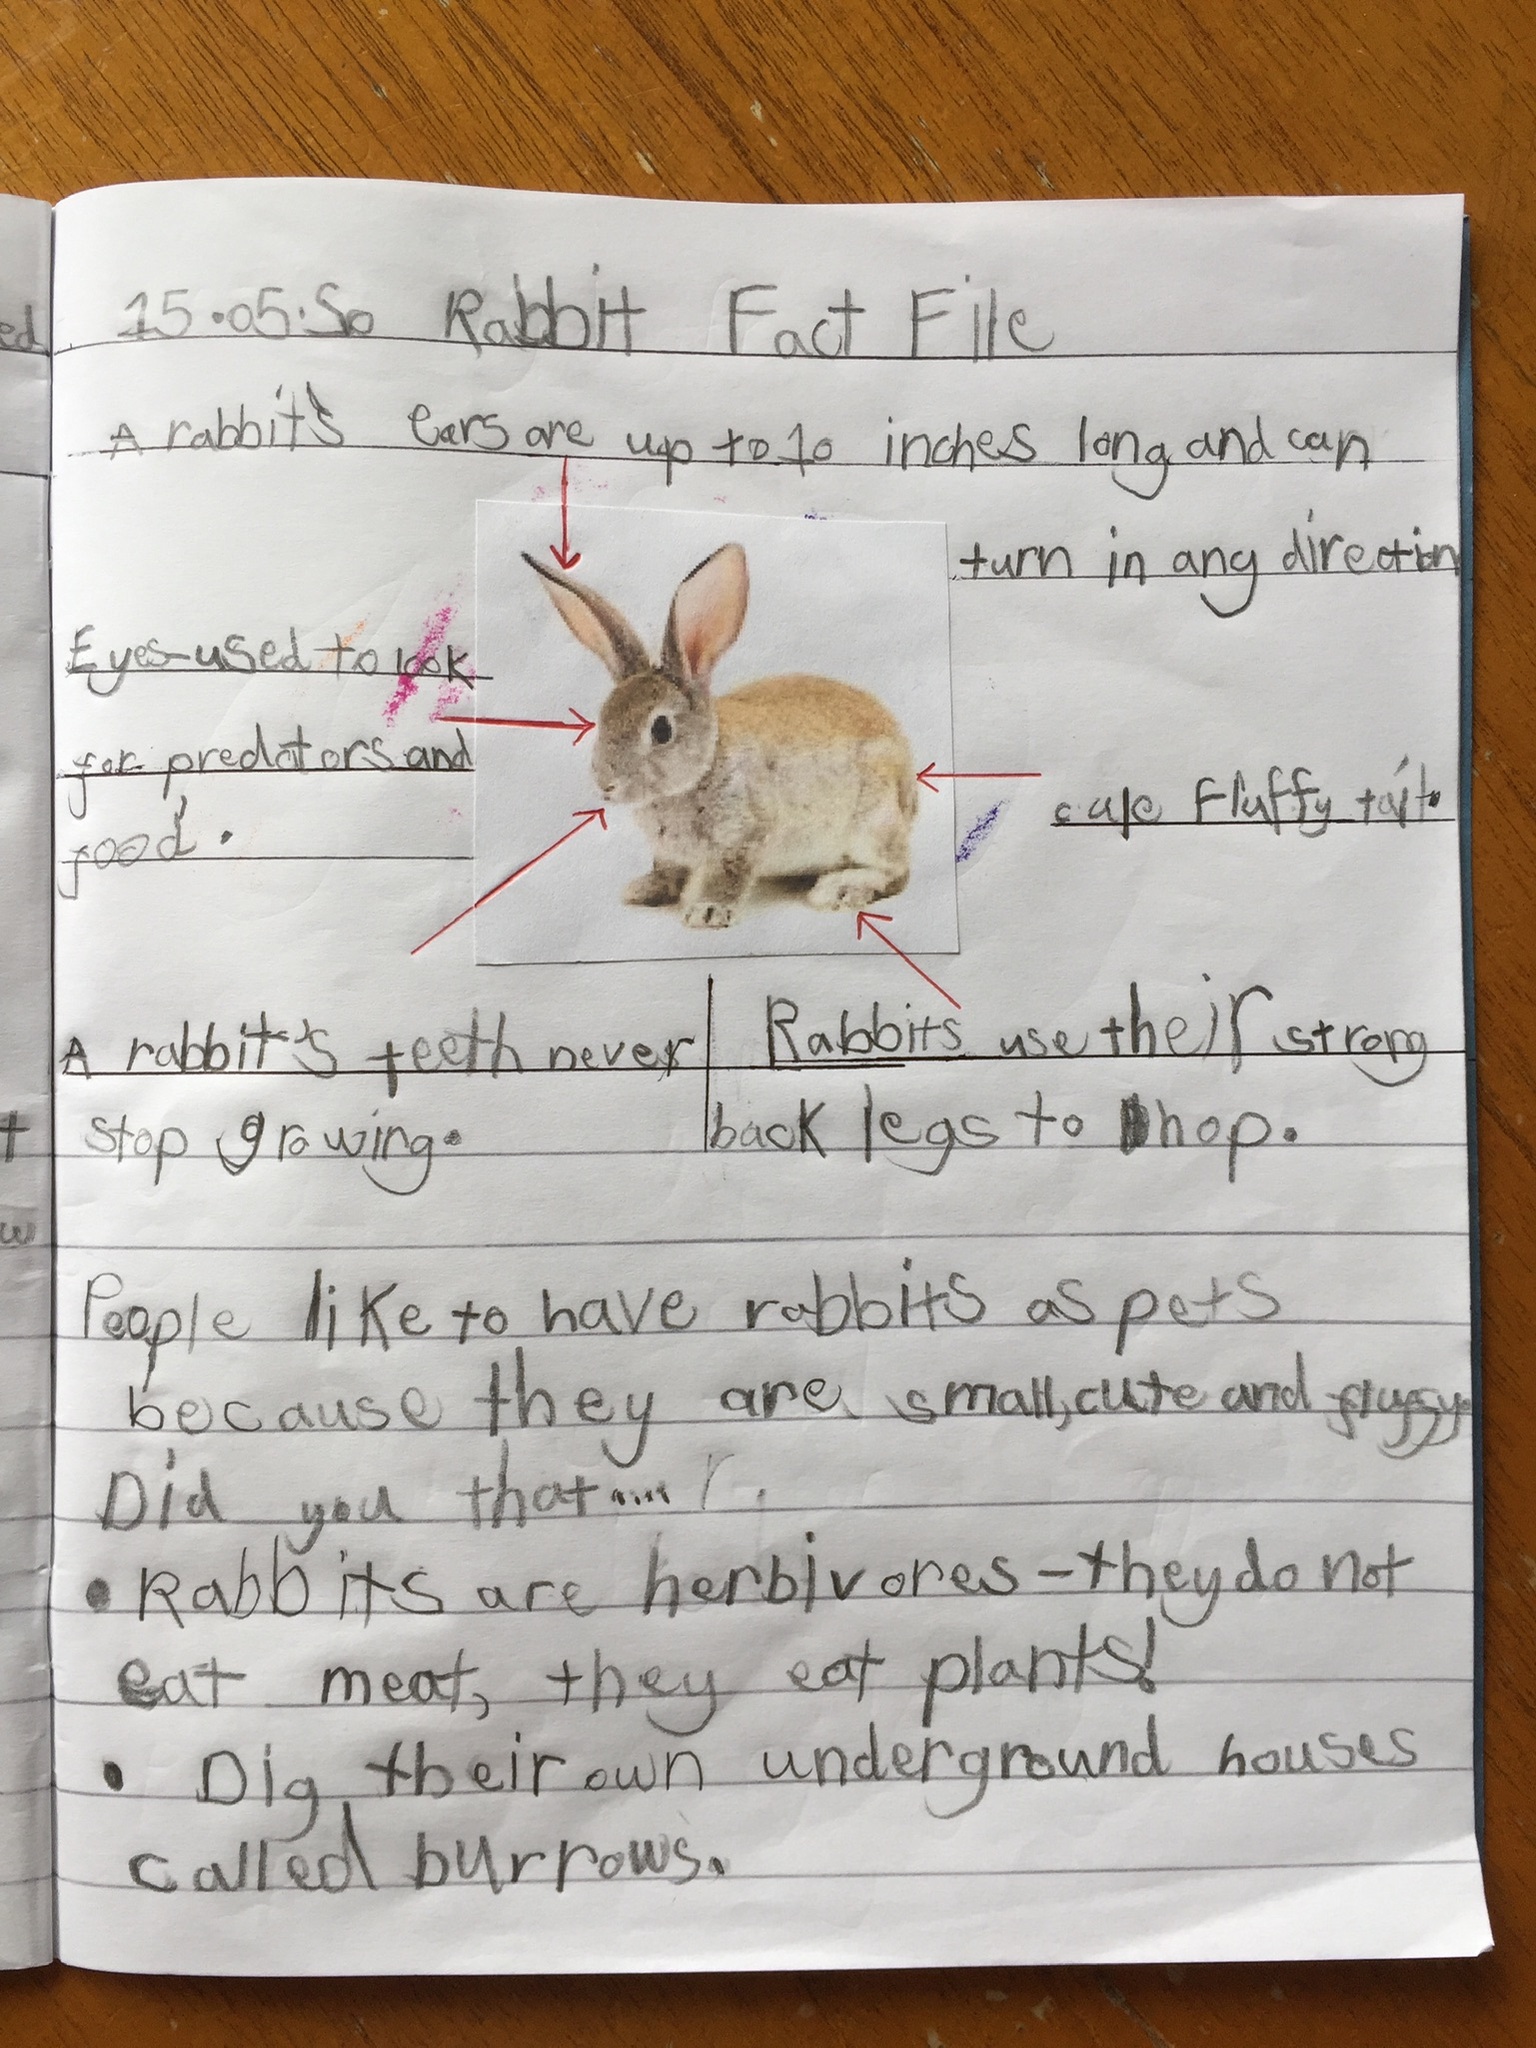 15.05.So Rabbit Fact File
A rabbit's ears are up to 10 inches long and can
turn in any direction
Eyes-used to look
for predators and
food.
Fluffy tail.
A rabbit's teeth never
stop growing.
Rabbits use their strong
back legs to hop.
People like to have rabbits as pets
because they are small, cute and fluffy.
Did you that....
• Rabbits are herbivores - they do not
eat meat, they eat plants!
• Dig their own underground houses
called burrows.
ed
t
w